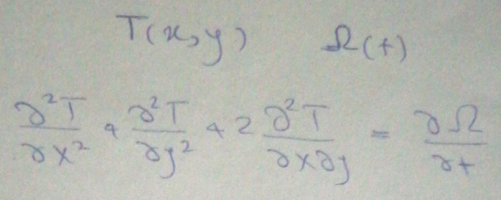 T(x,y) Ω(t)
∂²T/∂x² + ∂²T/∂y² + 2 ∂²T/∂x∂y = ∂Ω/∂t